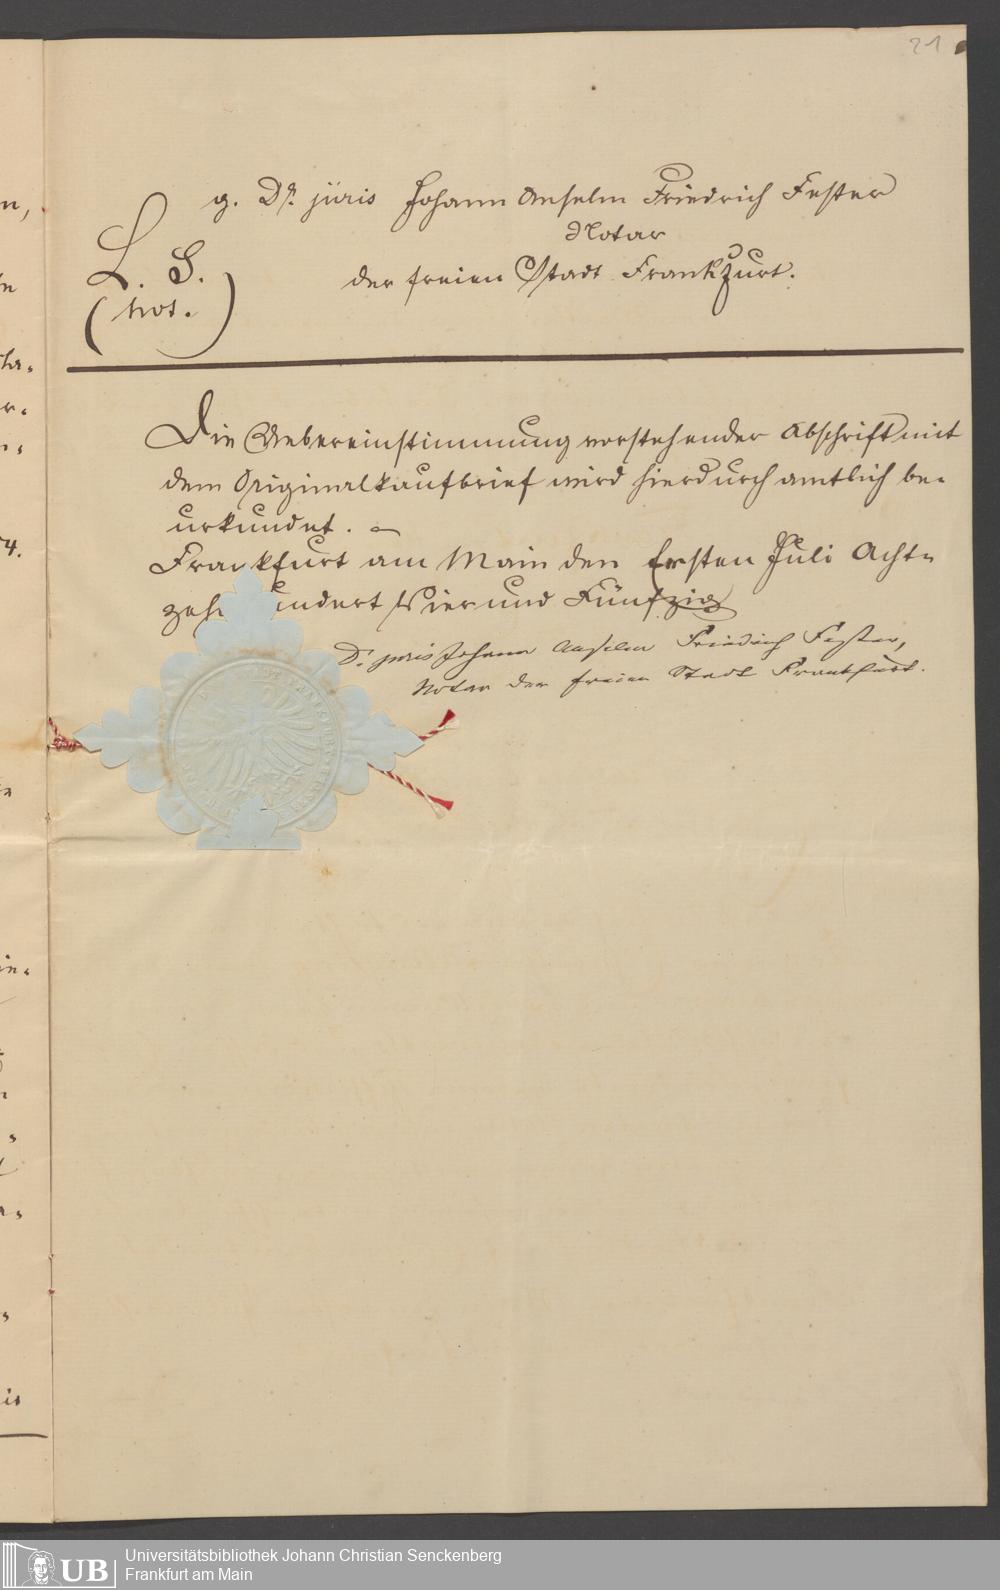 21
g. Dr. juris Johann Anselm Friedrich Fester
Notar
L. S. der freien Stadt Frankfurt.
(not.)
Die Uebereinstimmung vorstehender Abschrift mit
dem Originalkaufbrief wird hierdurch amtlich be-
urkundet. –
Frankfurt am Main den Ersten Juli Acht-
zehnhundert Vier und Fünfzig
Dr. juris Johann Anselm Friedrich Fester,
Notar der freien Stadt Frankfurt.
UB
Universitätsbibliothek Johann Christian Senckenberg
Frankfurt am Main